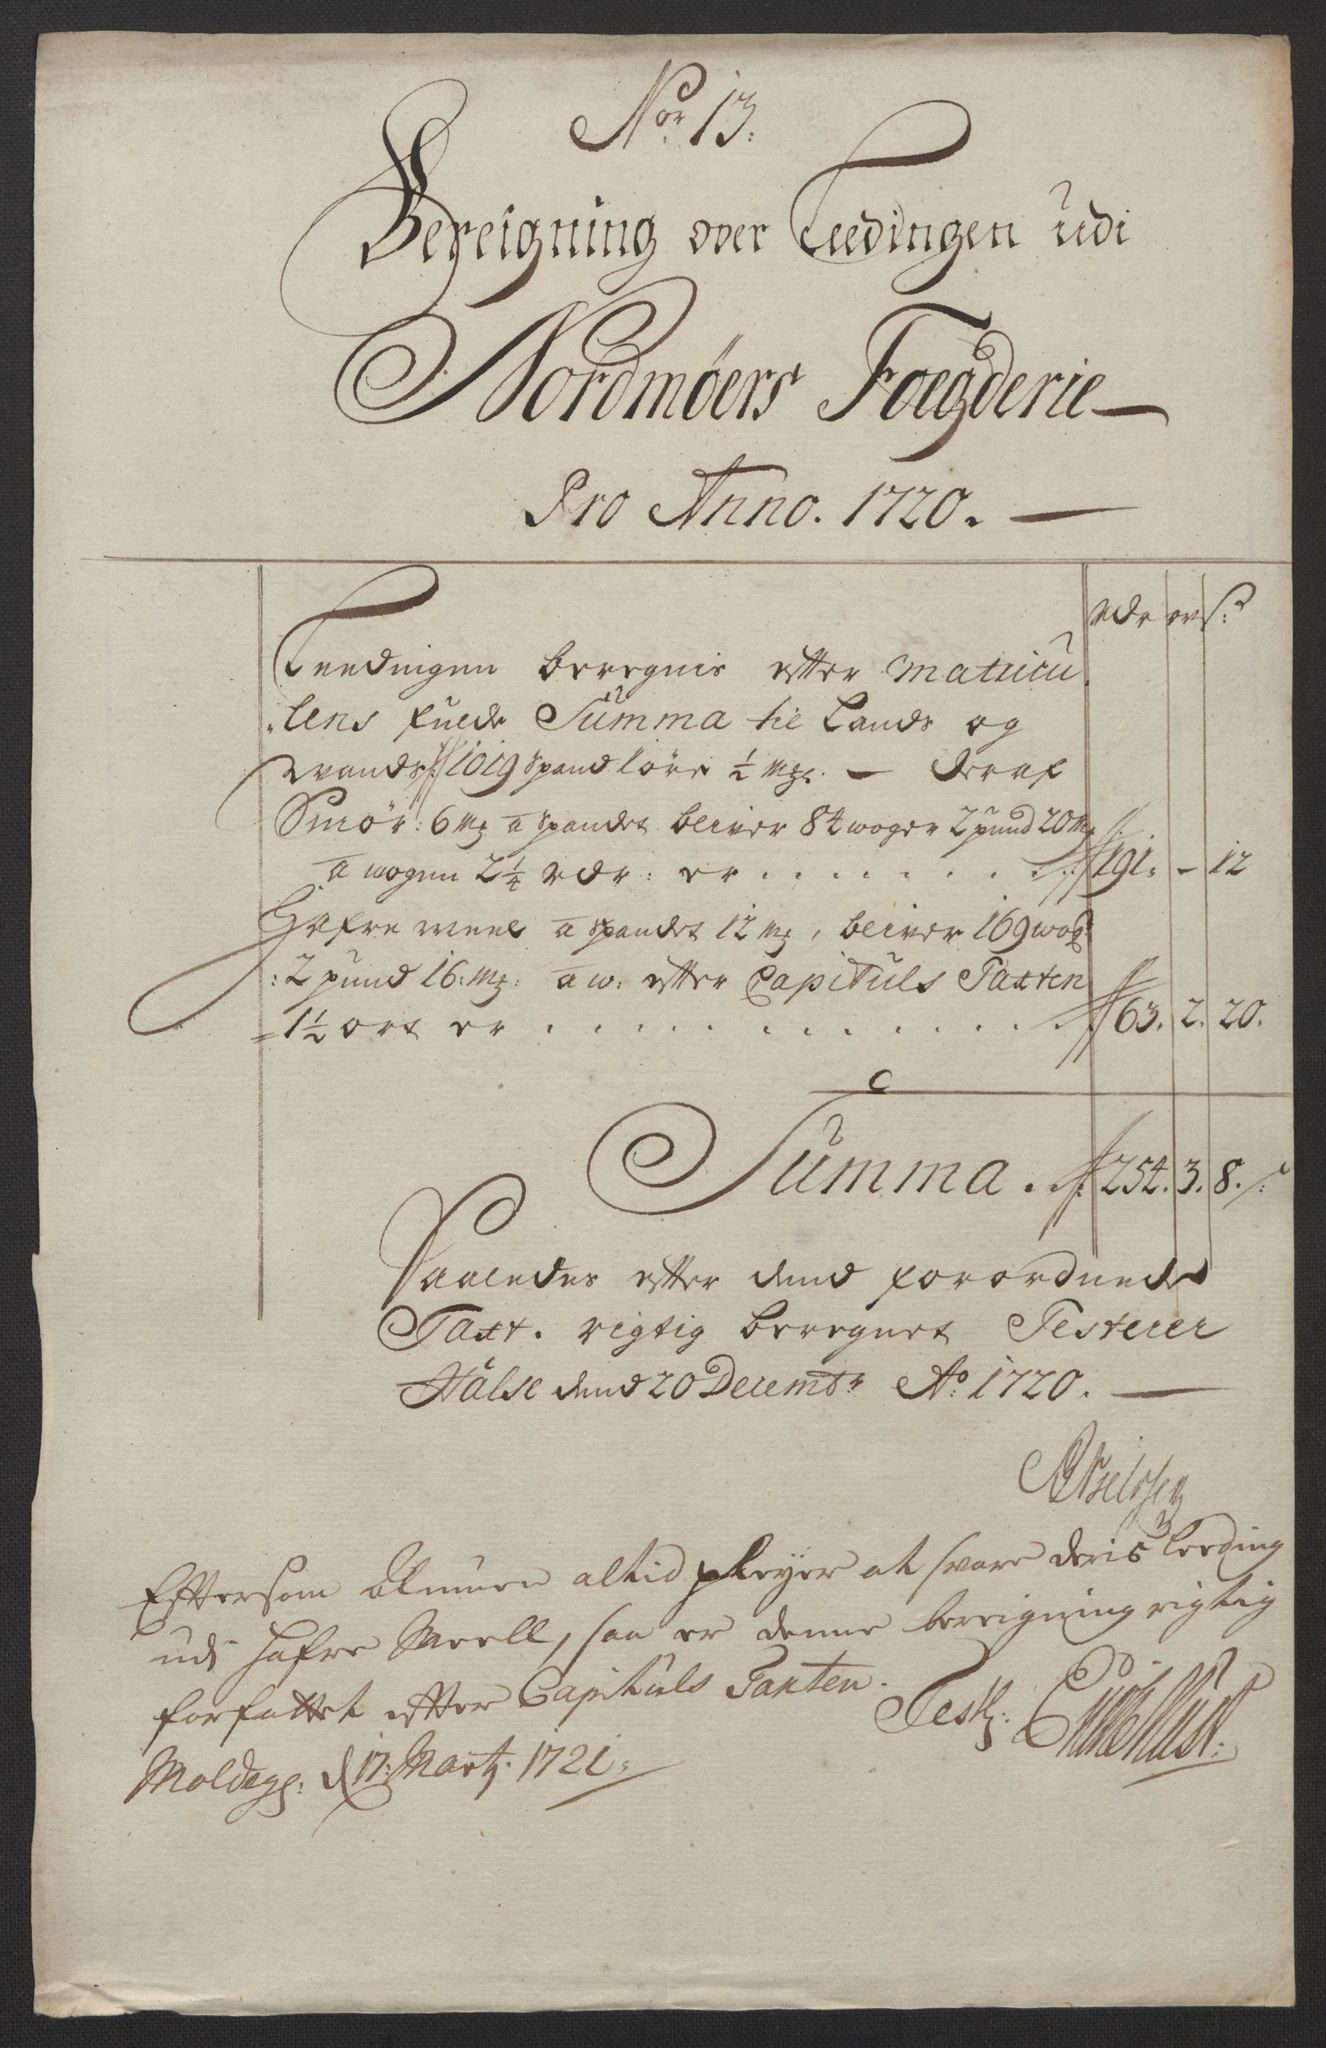 No 13.
Bereigning over Leedingen udi
Nordmøers Foegderie
Pro Anno. 1720.
rdr ort s:
Leedingen beregnis efter Matricu
lens fulde Summa til Lands og
Vands 1019 spand 1 øre ½ mkl. – deraf
Smør: 6 mk a spandet bliver 84 woger 2 pund 20 mk
a wogen 2¼ rdr: er . . . . . . . 191. – 12
Hafre meel a spandet 12 mk, bliver 169 wog
2 pund 16: mk: a w: efter Capituls Taxten
1½ ort er . . . . . . . . . . . . 63. 2. 20.
Summa . . 254. 3. 8.
Saaledes efter dend forordnede
Taxt. rigtig beregnet Testerer
Halse dend 20 Decembr Ao: 1720.
Eftersom Almuen altid pleyer at svare deris Leeding
udi Hafre Meell, saa er denne bereigning rigtig
forfattet efter Capituls Taxten.
Test:
Moldegr: d 17: Martz: 1721.